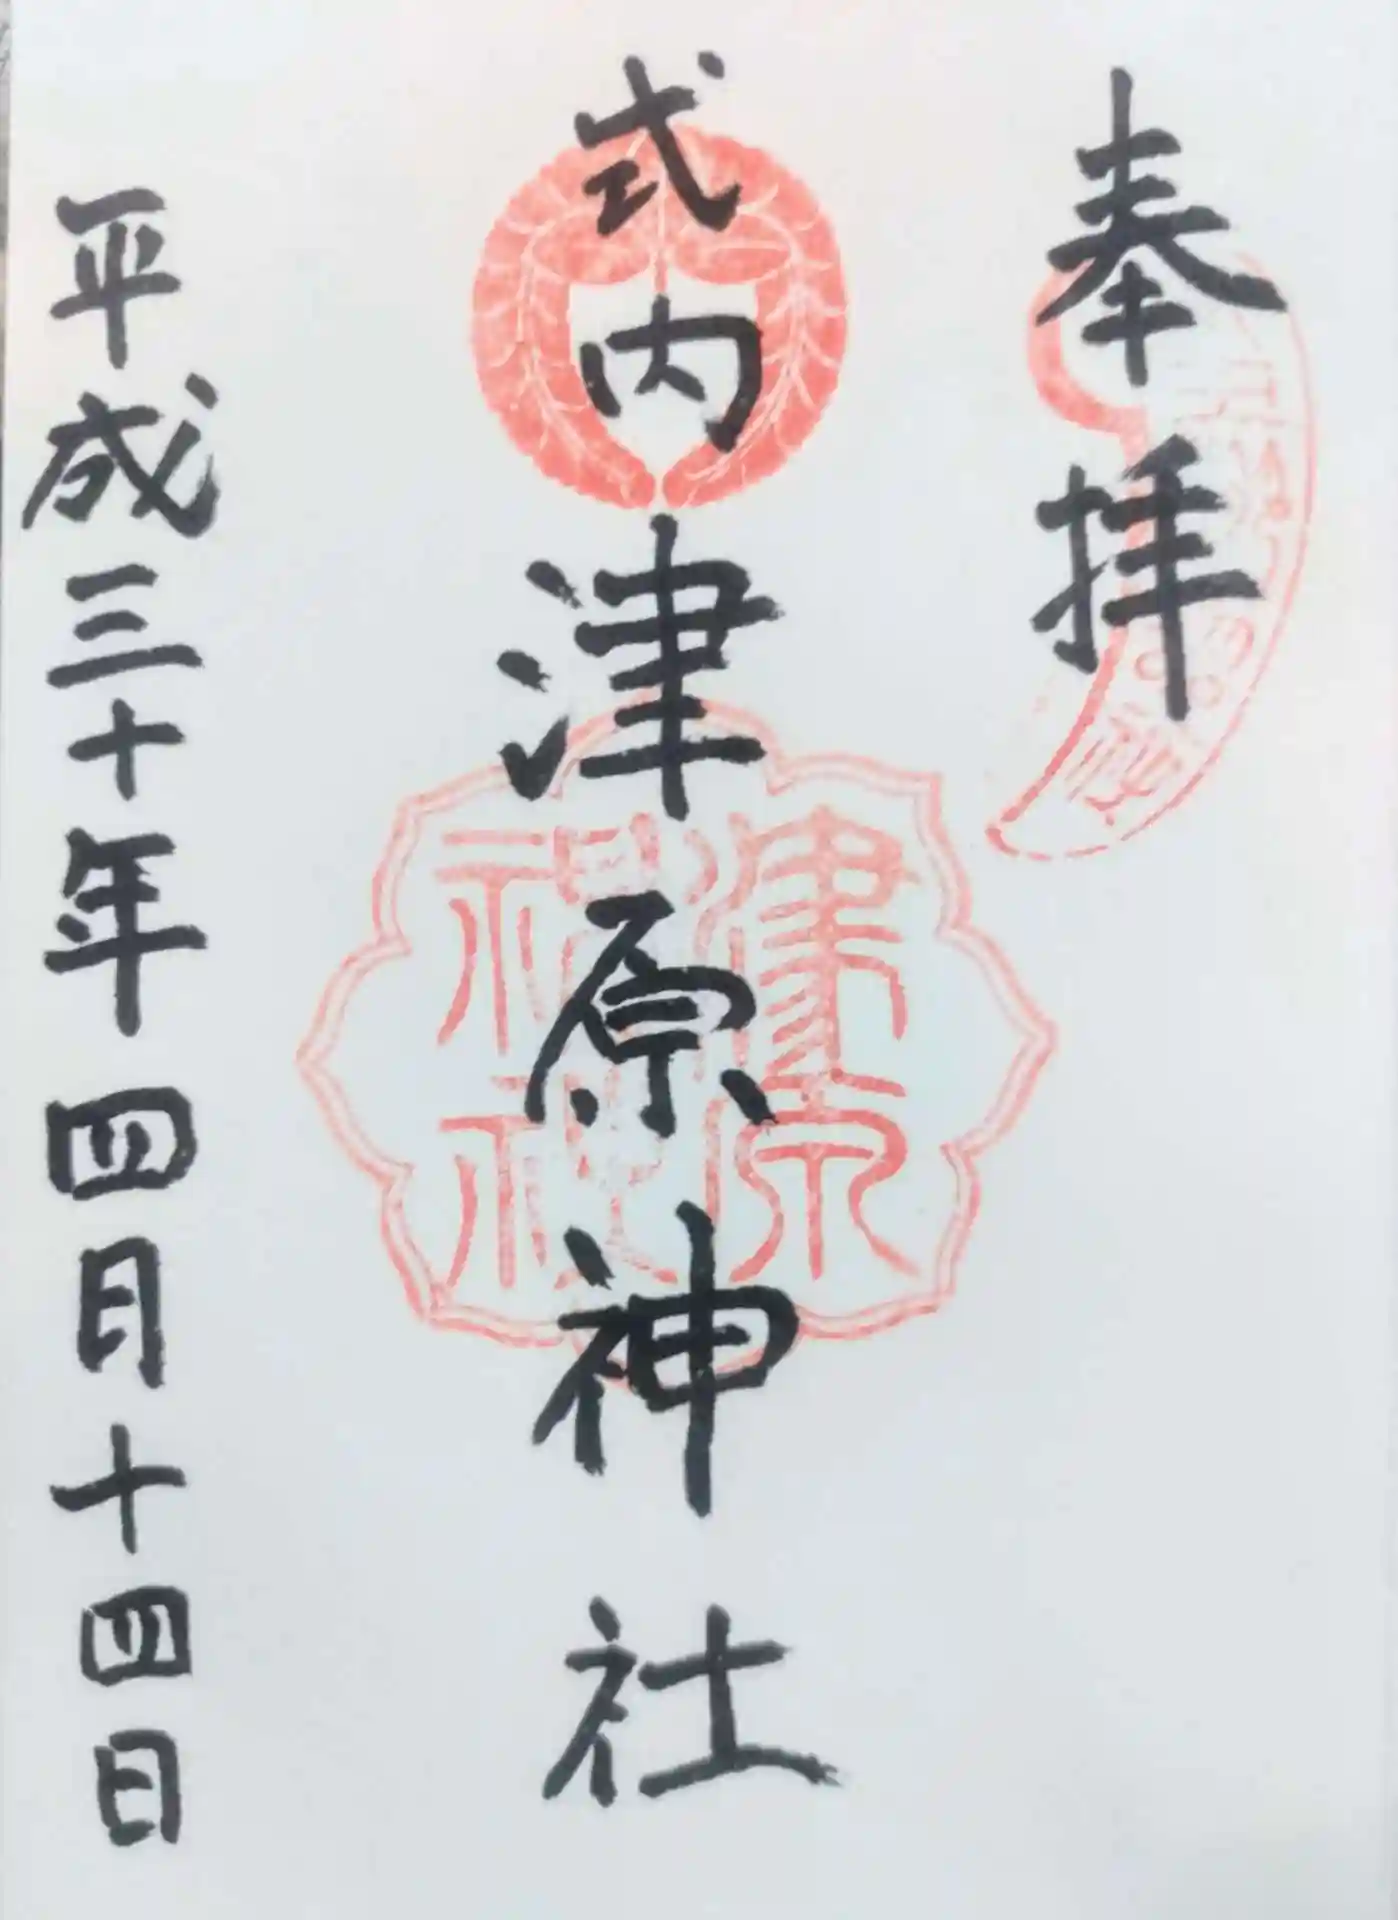 奉拝
式内津原神社
津原神社
平成三十年四月十四日